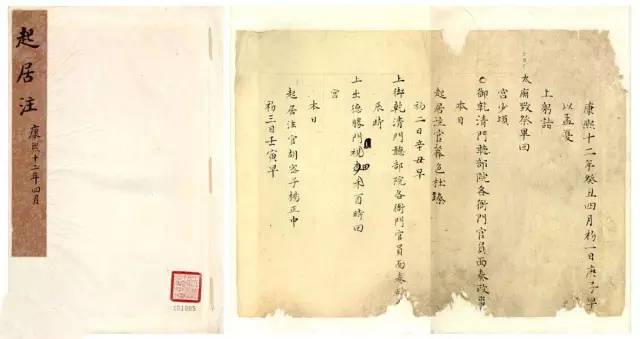 起居注
康熙十二年四月
康熙十二年癸丑四月初一日庚子早
以孟夏
上躬詣
太廟致祭畢回
宮少頃
上御乾清門聽部院各衙門官員面奏政事
本日
起居注官喇色杜臻
初二日辛丑早
上御乾清門聽部院各衙門官員面奏
辰時
上出德勝門 酉時回
宮
本日
起居注官胡密子楊正中
初三日壬寅早